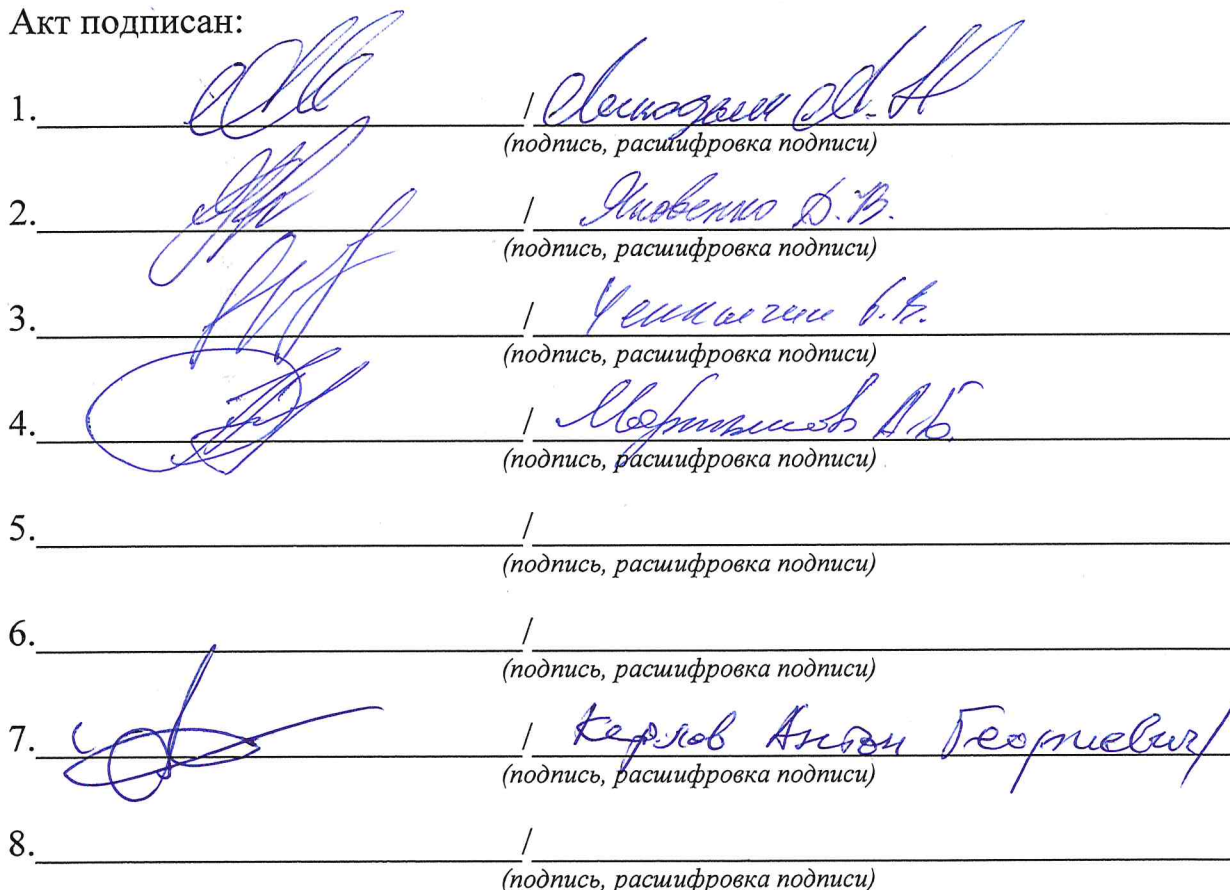 Акт подписан:
1. /
(подпись, расшифровка подписи)
2. / Яковенко Д.В.
(подпись, расшифровка подписи)
3. /
(подпись, расшифровка подписи)
4. / Мартынов А.Б.
(подпись, расшифровка подписи)
5. /
(подпись, расшифровка подписи)
6. /
(подпись, расшифровка подписи)
7. / Карлов Антон Георгиевич
(подпись, расшифровка подписи)
8. /
(подпись, расшифровка подписи)